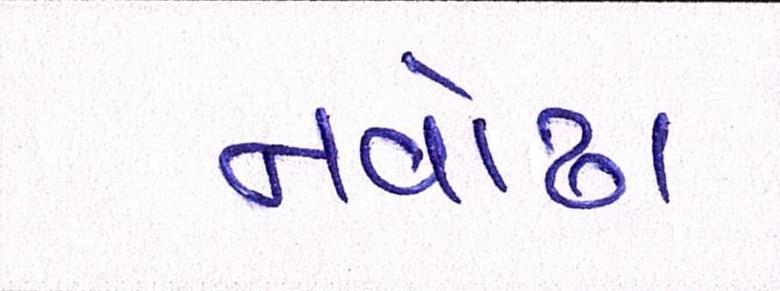 નવોઢા